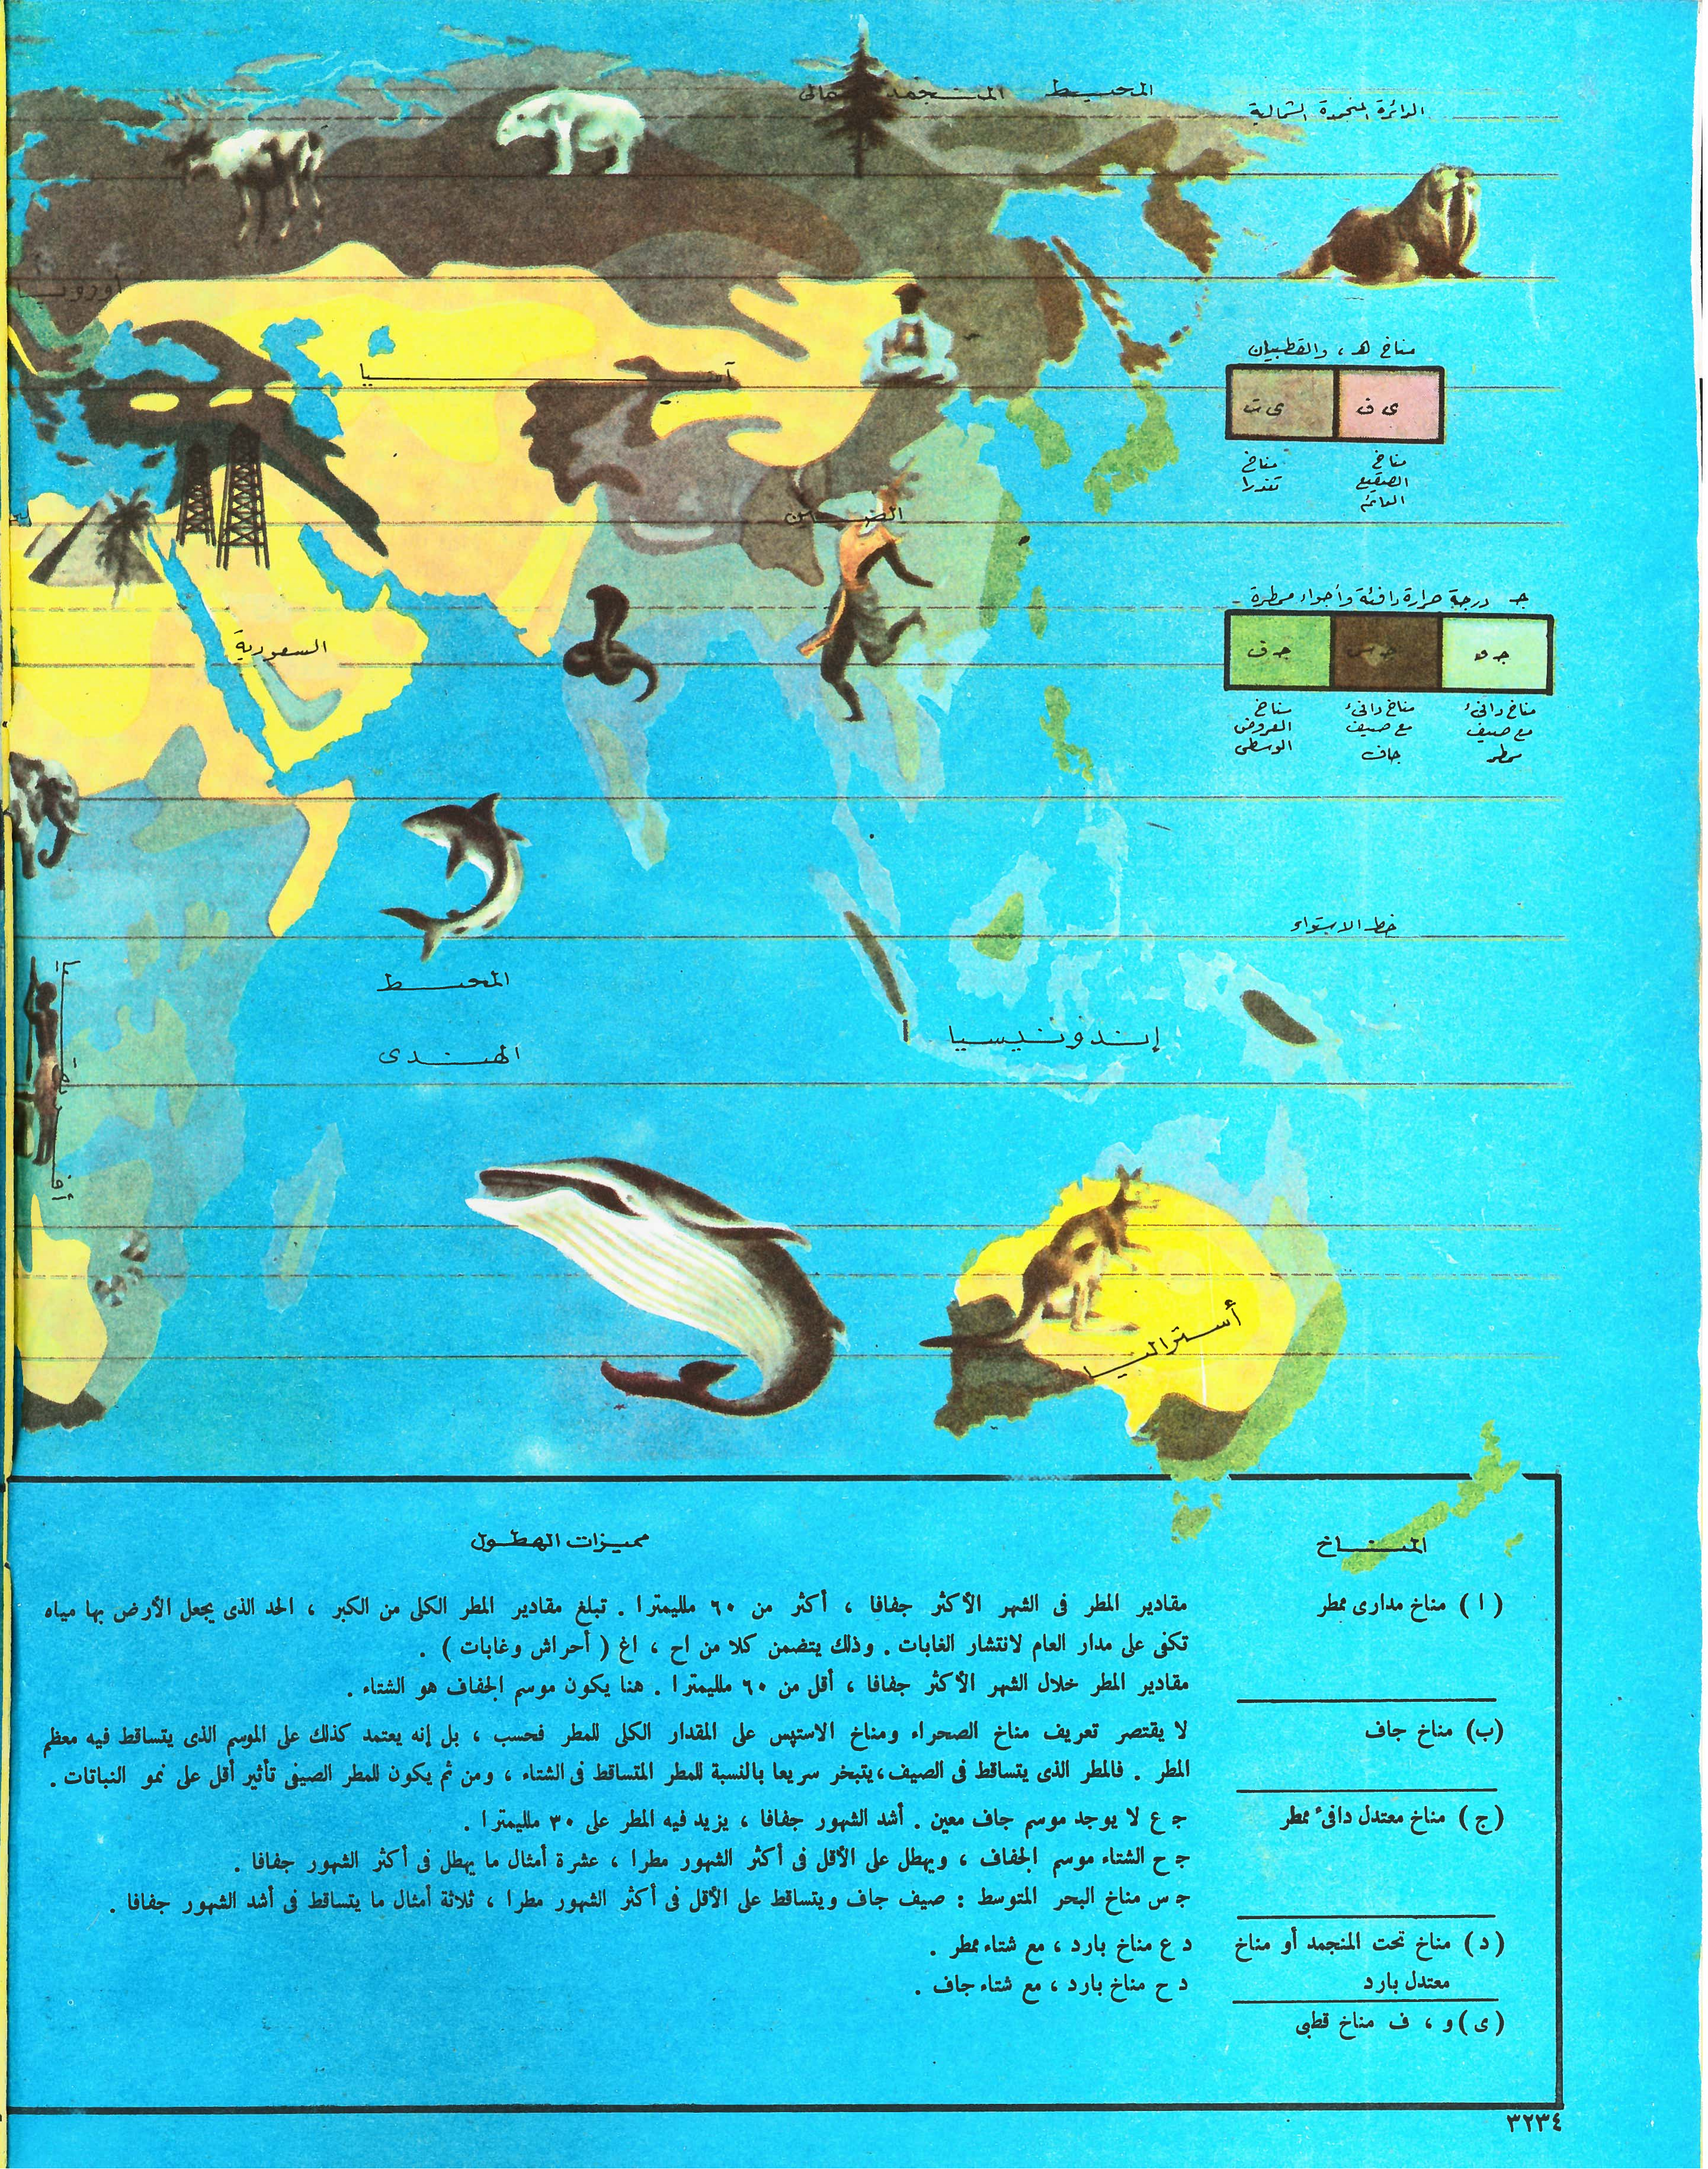 المحيط المتجمد الشمالى
الدائرة المنجمدة الشمالية
أوروبا
مناخ هـ ، والقطبيان
ى ف
ى ت
مناخ
الصقيع
الدائم
مناخ
تندرا
آسيا
الصين
جـ درجة حرارة دافئة وأجواء ممطرة
جـ و
جـ س
جـ ف
مناخ دافىء
مع صيف
ممطر
مناخ دافىء
مع صيف
جاف
مناخ
العروض
الوسطى
السعودية
خط الاستواء
المحيط
الهندى
إندونيسيا
أستراليا
المناخ
مميزات الهطول
( ا ) مناخ مدارى ممطر
مقادير المطر فى الشهر الأكثر جفافا ، أكثر من ٦٠ ملليمترا . تبلغ مقادير المطر الكلى من الكبر ، الحد الذى يجعل الأرض بها مياه
تكفى على مدار العام لانتشار الغابات . وذلك يتضمن كلا من اح ، اغ ( أحراش وغابات ) .
مقادير المطر خلال الشهر الأكثر جفافا ، أقل من ٦٠ ملليمترا . هنا يكون موسم الجفاف هو الشتاء .
(ب) مناخ جاف
لا يقتصر تعريف مناخ الصحراء ومناخ الاستپس على المقدار الكلى للمطر فحسب ، بل إنه يعتمد كذلك على الموسم الذى يتساقط فيه معظم
المطر . فالمطر الذى يتساقط فى الصيف ، يتبخر سريعا بالنسبة للمطر المتساقط فى الشتاء ، ومن ثم يكون للمطر الصيفى تأثير أقل على نمو النباتات .
(ج) مناخ معتدل دافىء ممطر
جـ ع لا يوجد موسم جاف معين . أشد الشهور جفافا ، يزيد فيه المطر على ٣٠ ملليمترا .
جـ ح الشتاء موسم الجفاف ، ويهطل على الأقل فى أكثر الشهور مطرا ، عشرة أمثال ما يهطل فى أكثر الشهور جفافا .
جـ س مناخ البحر المتوسط : صيف جاف ويتساقط على الأقل فى أكثر الشهور مطرا ، ثلاثة أمثال ما يتساقط فى أشد الشهور جفافا .
(د) مناخ تحت المنجمد أو مناخ
معتدل بارد
د ع مناخ بارد ، مع شتاء ممطر .
د ح مناخ بارد ، مع شتاء جاف .
(ى) و ، ف مناخ قطبى
٣٢٣٤